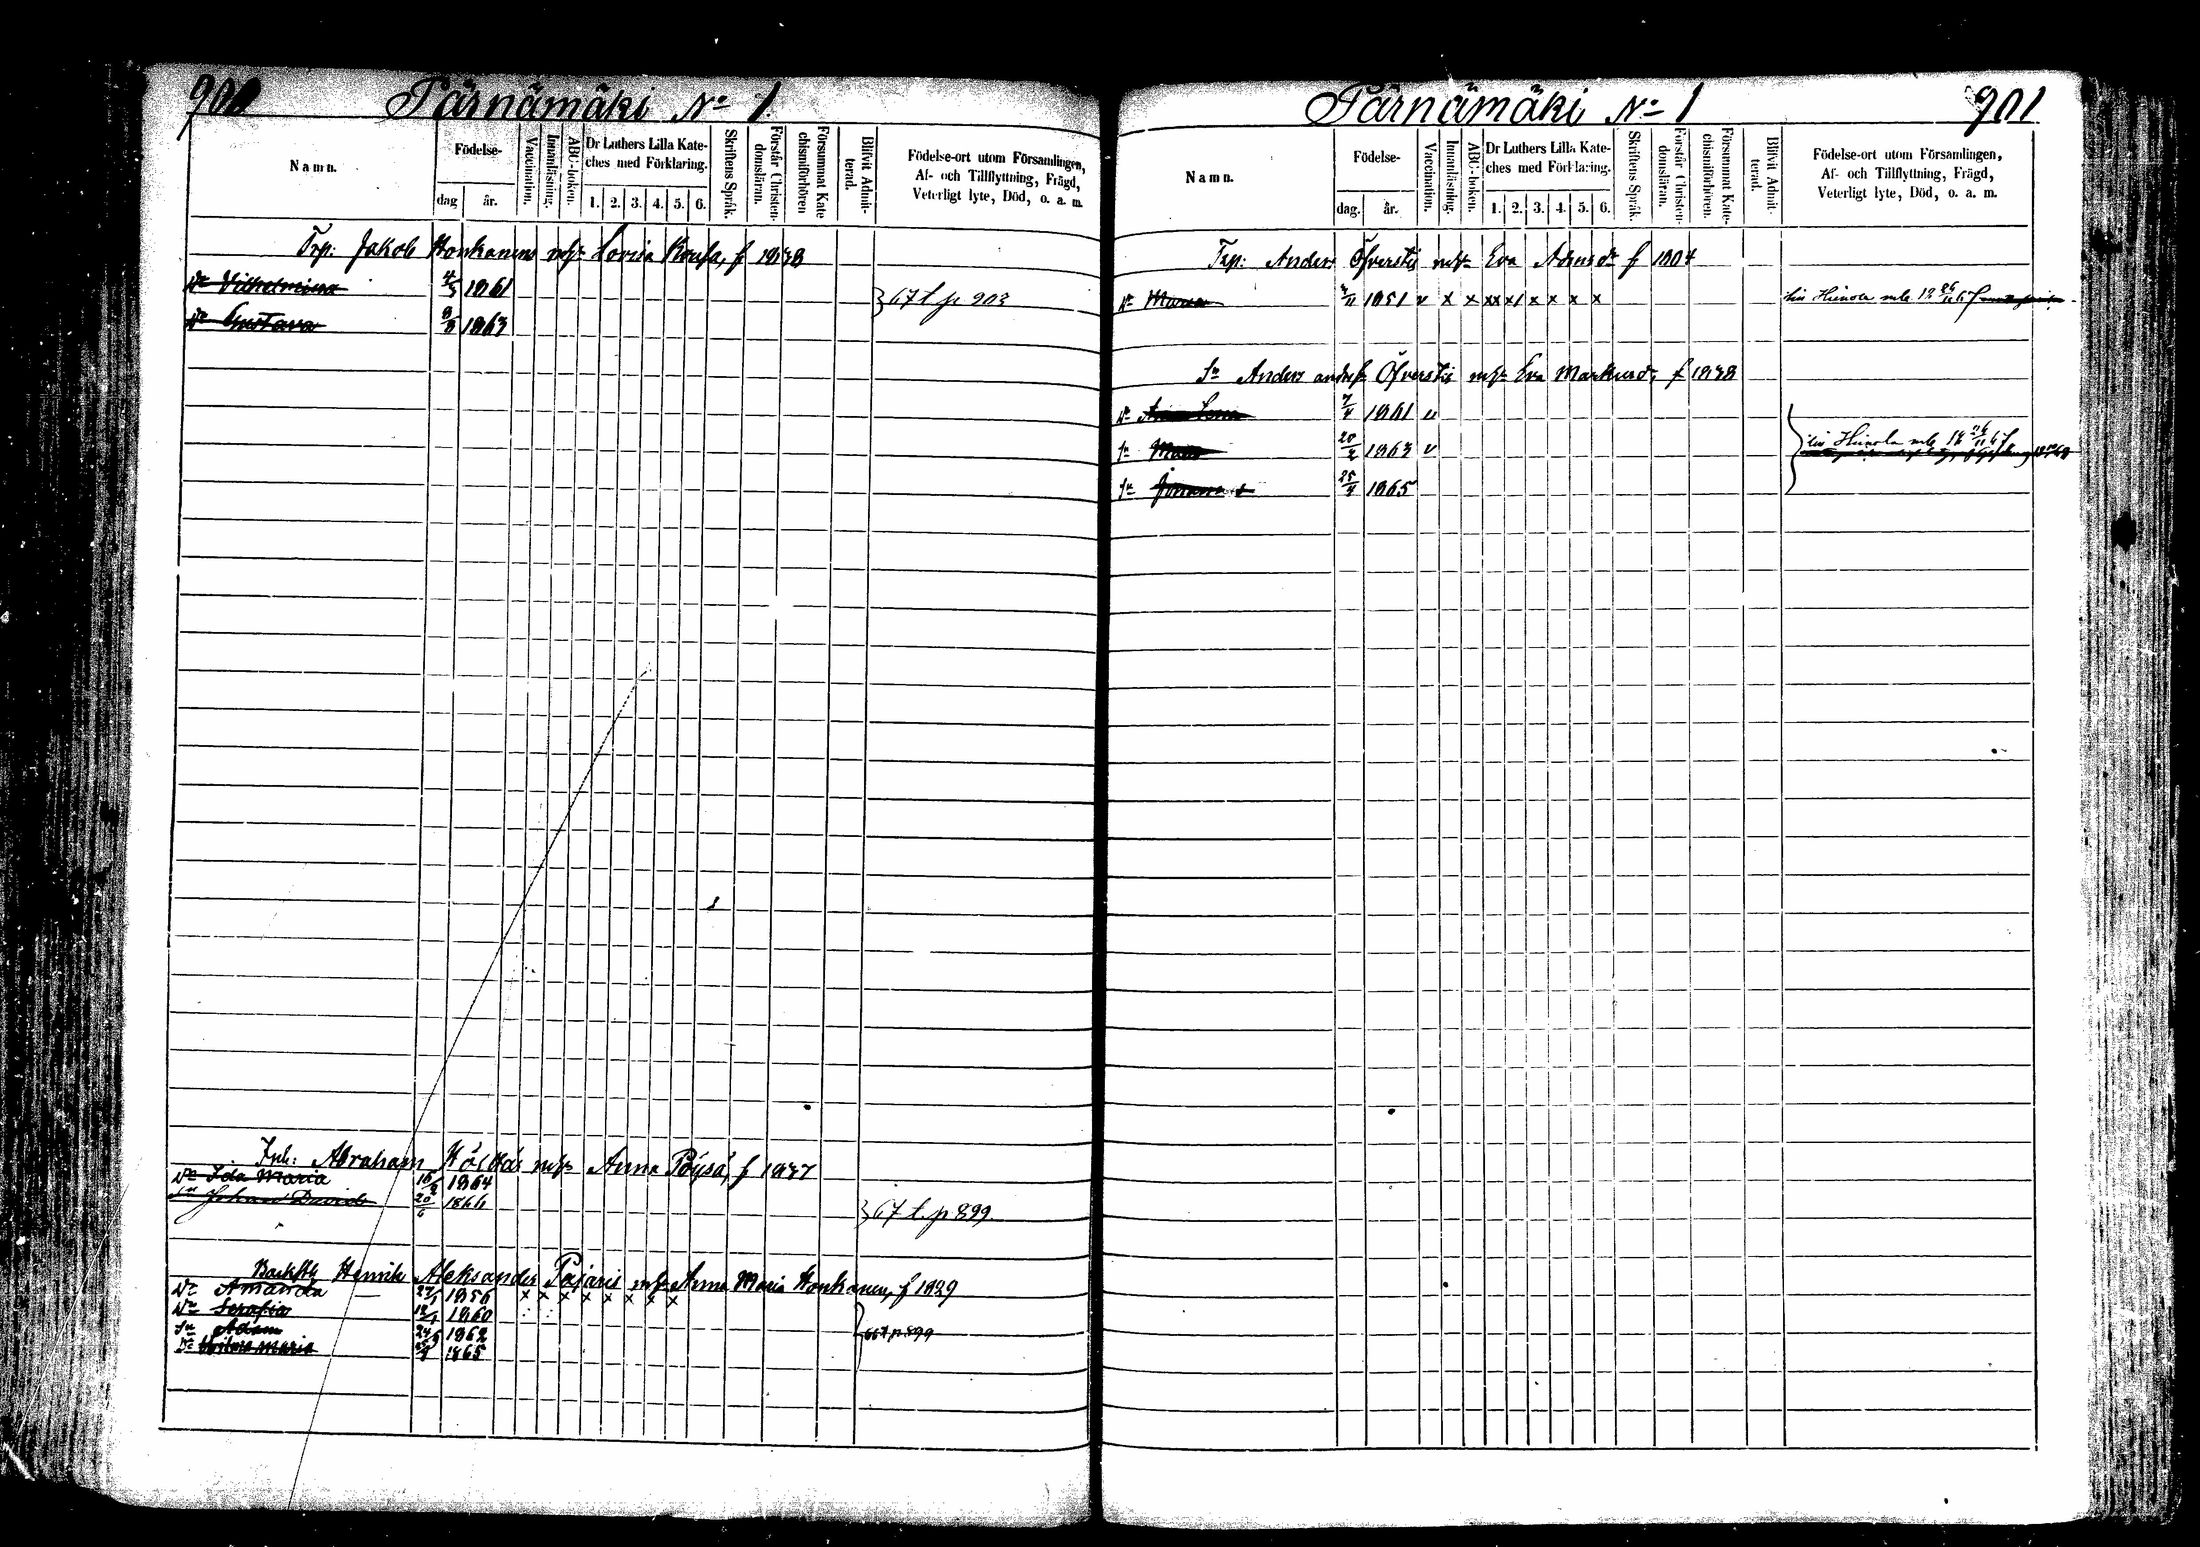 900 Pärnämäki No 1.
Namn.
Födelse-
dag
år.
Vaccination.
Innanläsning.
ABC-boken.
Dr Luthers Lilla Kate-
ches med Förklaring.
1. 2. 3. 4. 5. 6.
Skriftens Språk.
Förstår Christen-
domsläran.
Försummat Kate
chismiförhören
Blifvit Admit-
terad.
Födelse-ort utom Församlingen,
Af- och Tillflyttning, Frägd,
Veterligt lyte, Död, o. a. m.
Trp: Jakob Honkanens Lovisa f 1838
Dr Vilhelmina 4/5 1861
} 67 t. p 903
Dr Gustava 1863
Inh: Abraham Anna Pöysä, f 1837
Dr Ida Maria 1864
Sn Johan David 20/6 1866
} 67 t. p 899
Henrik Aleksander Pajaris Anna Maria Honkanen, f 1829
Dr Amanda 1856 x x x x x x x x
Dr Serafia 1860
Sn Adam 1862
p. 899
Dr Maria 1865
Pärnämäki No 1 901
Namn.
Födelse-
dag.
år.
Vaccination.
Innanläsning.
ABC-boken.
Dr Luthers Lilla Kate-
ches med Förklaring.
1. 2. 3. 4. 5. 6.
Skriftens Språk.
Förstår Christen-
domsläran.
Försummat Kate-
chismiförhören.
Blifvit Admit-
terad.
Födelse-ort utom Församlingen,
Af- och Tillflyttning, Frägd,
Veterligt lyte, Död, o. a. m.
Trp: Anders Öfverstis Eva Adamsdr f 1804
Dr Maria 1851 v x x xx x x x x x
Sn Anders Öfverstis Eva Markusdr, f 1838
Dr 7/4 1861 v
Sn 20/2 1863 v
Sn 25/4 1865